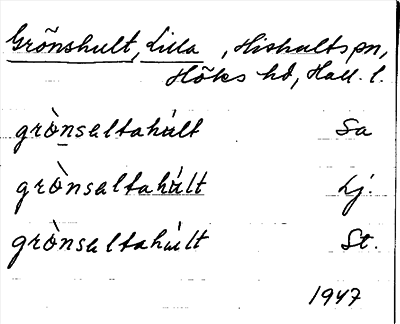 Grönshult, Lilla, Hishults sn,
Höks hd, Hall. l.
grò̀nsaltahúlt Sa
grò̀nsaltahúlt Lj.
grò̀nsaltahúlt St.
1947